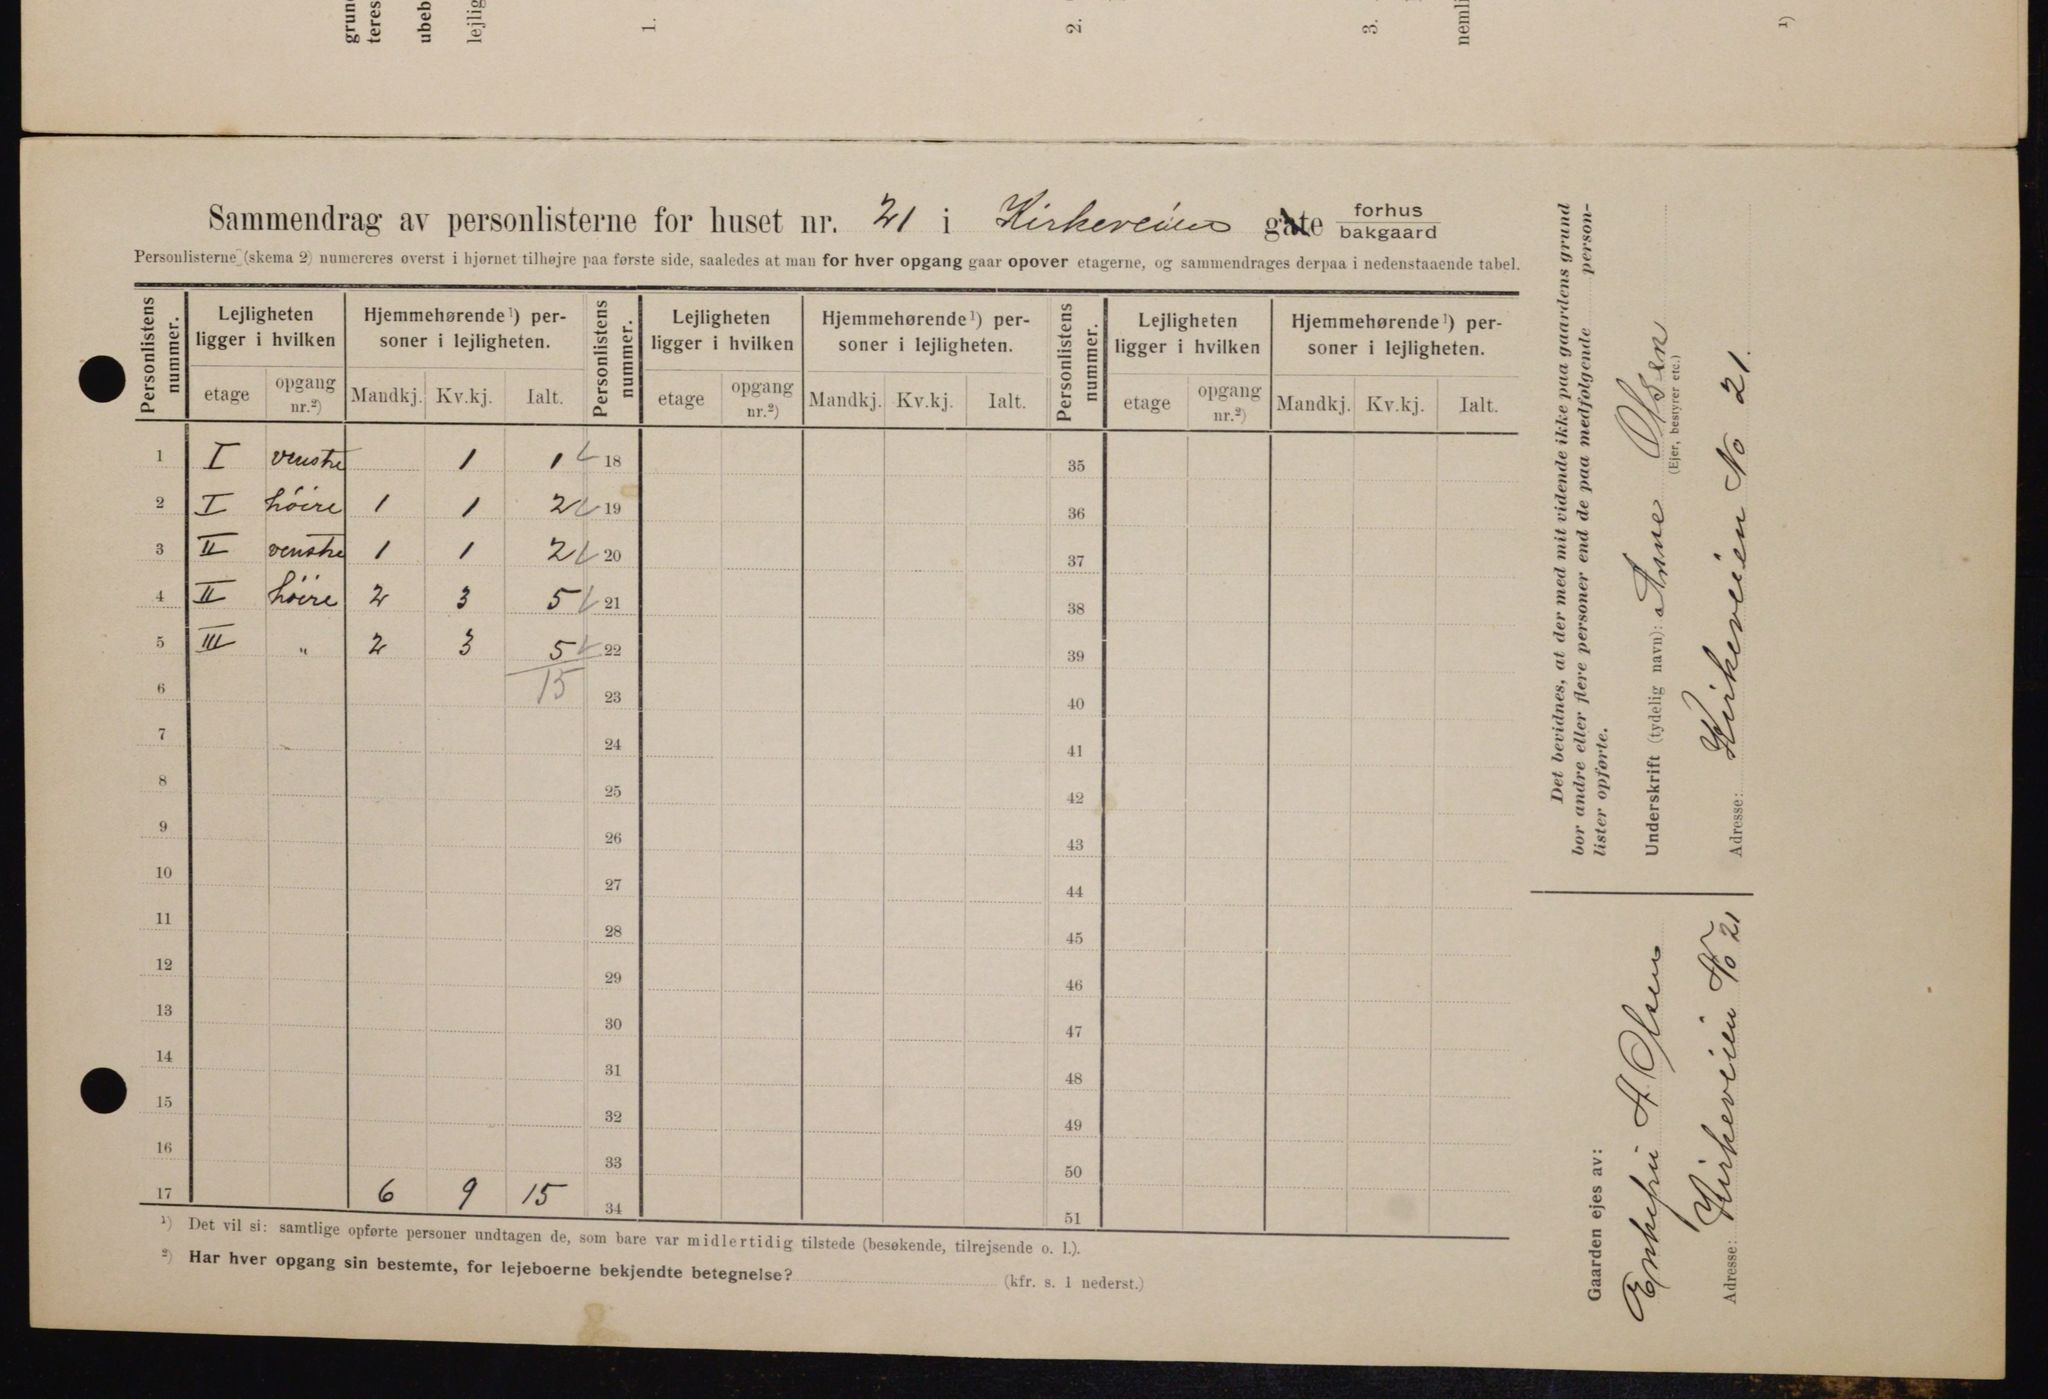 grun
teres
ubeb
lejlig
1.
2.
3.
nemli
1)
Sammendrag av personlisterne for huset nr. 21 i Kirkeveien gate forhus
bakgaard
Personlisterne (skema 2) numereres øverst i hjørnet tilhøjre paa første side, saaledes at man for hver opgang gaar opover etagerne, og sammendrages derpaa i nedenstaaende tabel.
Personlistens nummer. Lejligheten ligger i hvilken Hjemmehørende¹) personer i lejligheten. Personlistens nummer. Lejligheten ligger i hvilken Hjemmehørende¹) personer i lejligheten. Personlistens nummer. Lejligheten ligger i hvilken Hjemmehørende¹) personer i lejligheten.
etage opgang nr.²) Mandkj. Kv.kj. Ialt. etage opgang nr.²) Mandkj. Kv.kj. Ialt. etage opgang nr.²) Mandkj. Kv.kj. Ialt.
1 I venstre 1 1 18 35
2 I høire 1 1 2 19 36
3 II venstre 1 1 2 20 37
4 II høire 2 3 5 21 38
5 III " 2 3 5 22 39
6 15 23 40
7 24 41
8 25 42
9 26 43
10 27 44
11 28 45
12 29 46
13 30 47
14 31 48
15 32 49
16 33 50
17 6 9 15 34 51
¹) Det vil si: samtlige opførte personer undtagen de, som bare var midlertidig tilstede (besøkende, tilrejsende o. l.).
²) Har hver opgang sin bestemte, for lejeboerne bekjendte betegnelse? (kfr. s. 1 nederst.)
Det bevidnes, at der med mit vidende ikke paa gaardens grund
bor andre eller flere personer end de paa medfølgende person-
lister opførte.
Underskrift (tydelig navn): Anne Olsen
(Ejer, bestyrer etc.)
Adresse: Kirkeveien No 21.
Gaarden ejes av:
Enkefru A. Olsen
Adresse: Kirkeveien No 21